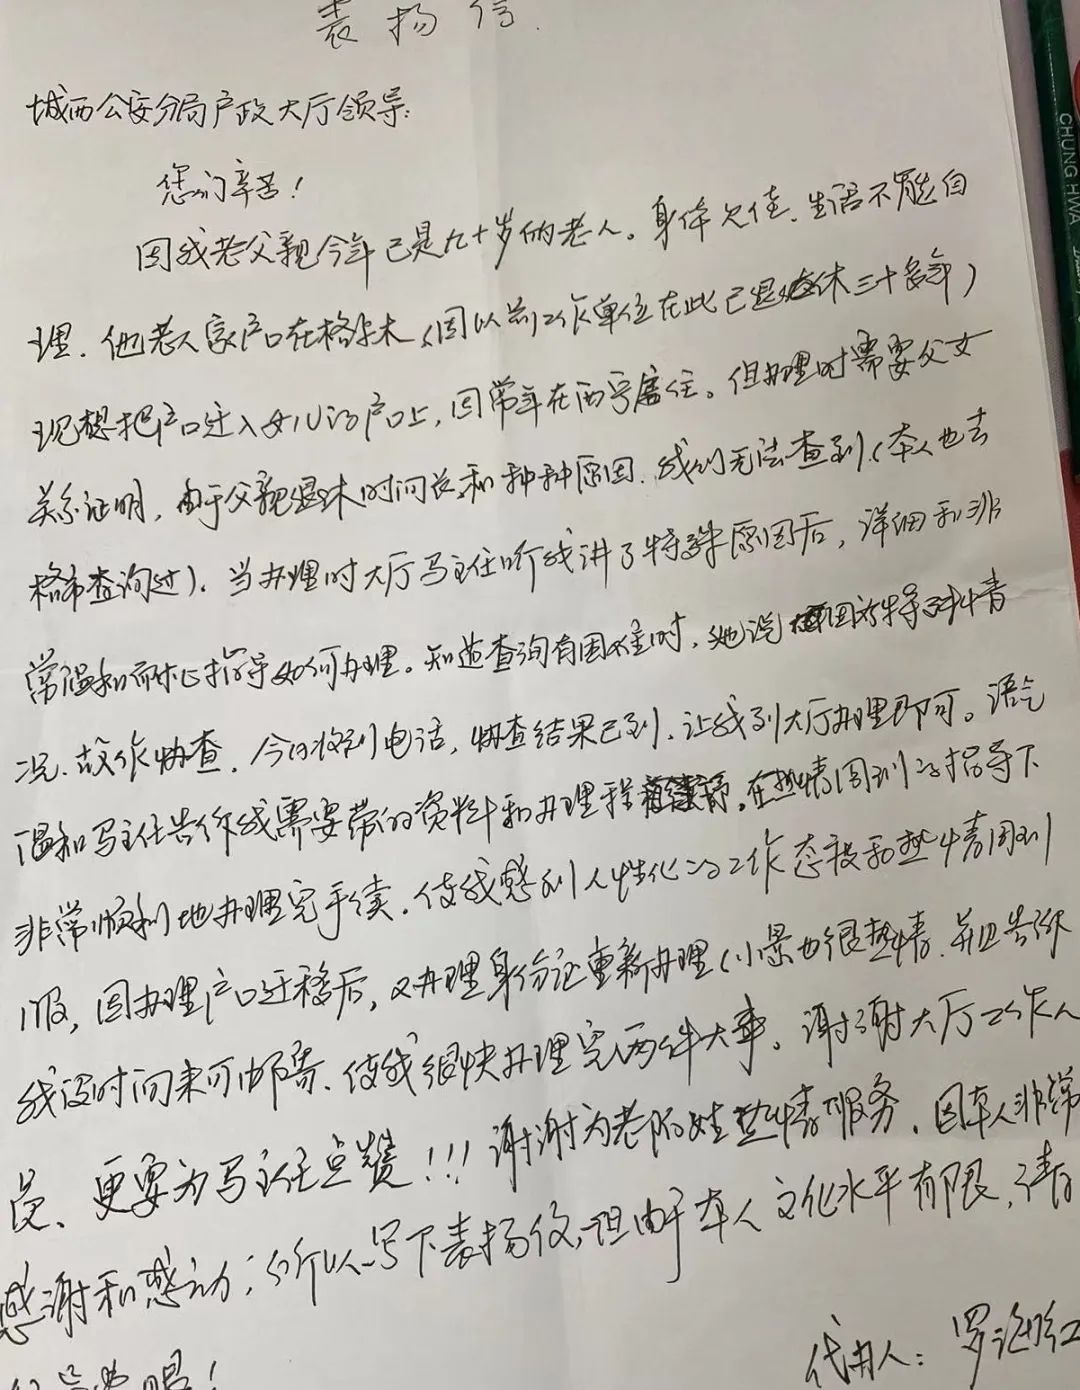 表扬信
城西公安分局户政大厅领导:
您们辛苦!
因我老父亲今年已是九十岁的老人。身体欠佳.生活不能自
理.他老人家户口在格尔木(因以前工作单位在此已退休三十多年)
现想把户口迁入女儿的户口上,因常年在西宁居住。但办理时需要父女
关系证明,由于父亲退休时间长和种种原因.我们无法查到(本人也去
格市查询过).当办理时大厅马主任听我讲了特殊原因后,详细和非
常温和耐心指导如何办理。知道查询有困难时,她说因为特殊情
况.故作协查.今日收到电话,协查结果已到.让我到大厅办理即可。语气
温和马主任告诉我需要带的资料和办理程序.在热情周到的指导下
非常顺利地办理完手续.使我感到人性化的工作态度和热情周到
服,因办理户口迁移后,又办理身份证重新办理(小景也很热情.并且告诉
我没时间来可邮寄.使我很快办理完两件大事。谢谢大厅工作人
员、更要为马主任点赞!!!谢谢为老百姓热情服务.因本人非常
感谢和感动;所以写下表扬信,但由于本人文化水平有限,请
代办人:罗 红